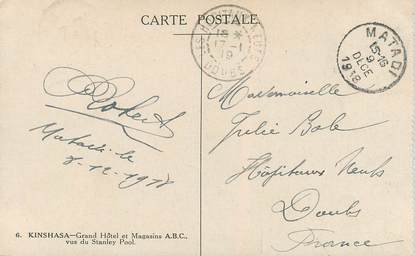 CARTE POSTALE
LES HOPITAUX-NEUFS
15 *
17-1
19
DOUBS
MATADI
15-16
9
DECE
1918
Robert
Matadi le
8-12-1918
Mademoiselle
Julie Bole
Hôpitaux Neufs
Doubs
France
6. KINSHASA—Grand Hôtel et Magasins A.B.C.,
vus du Stanley Pool.